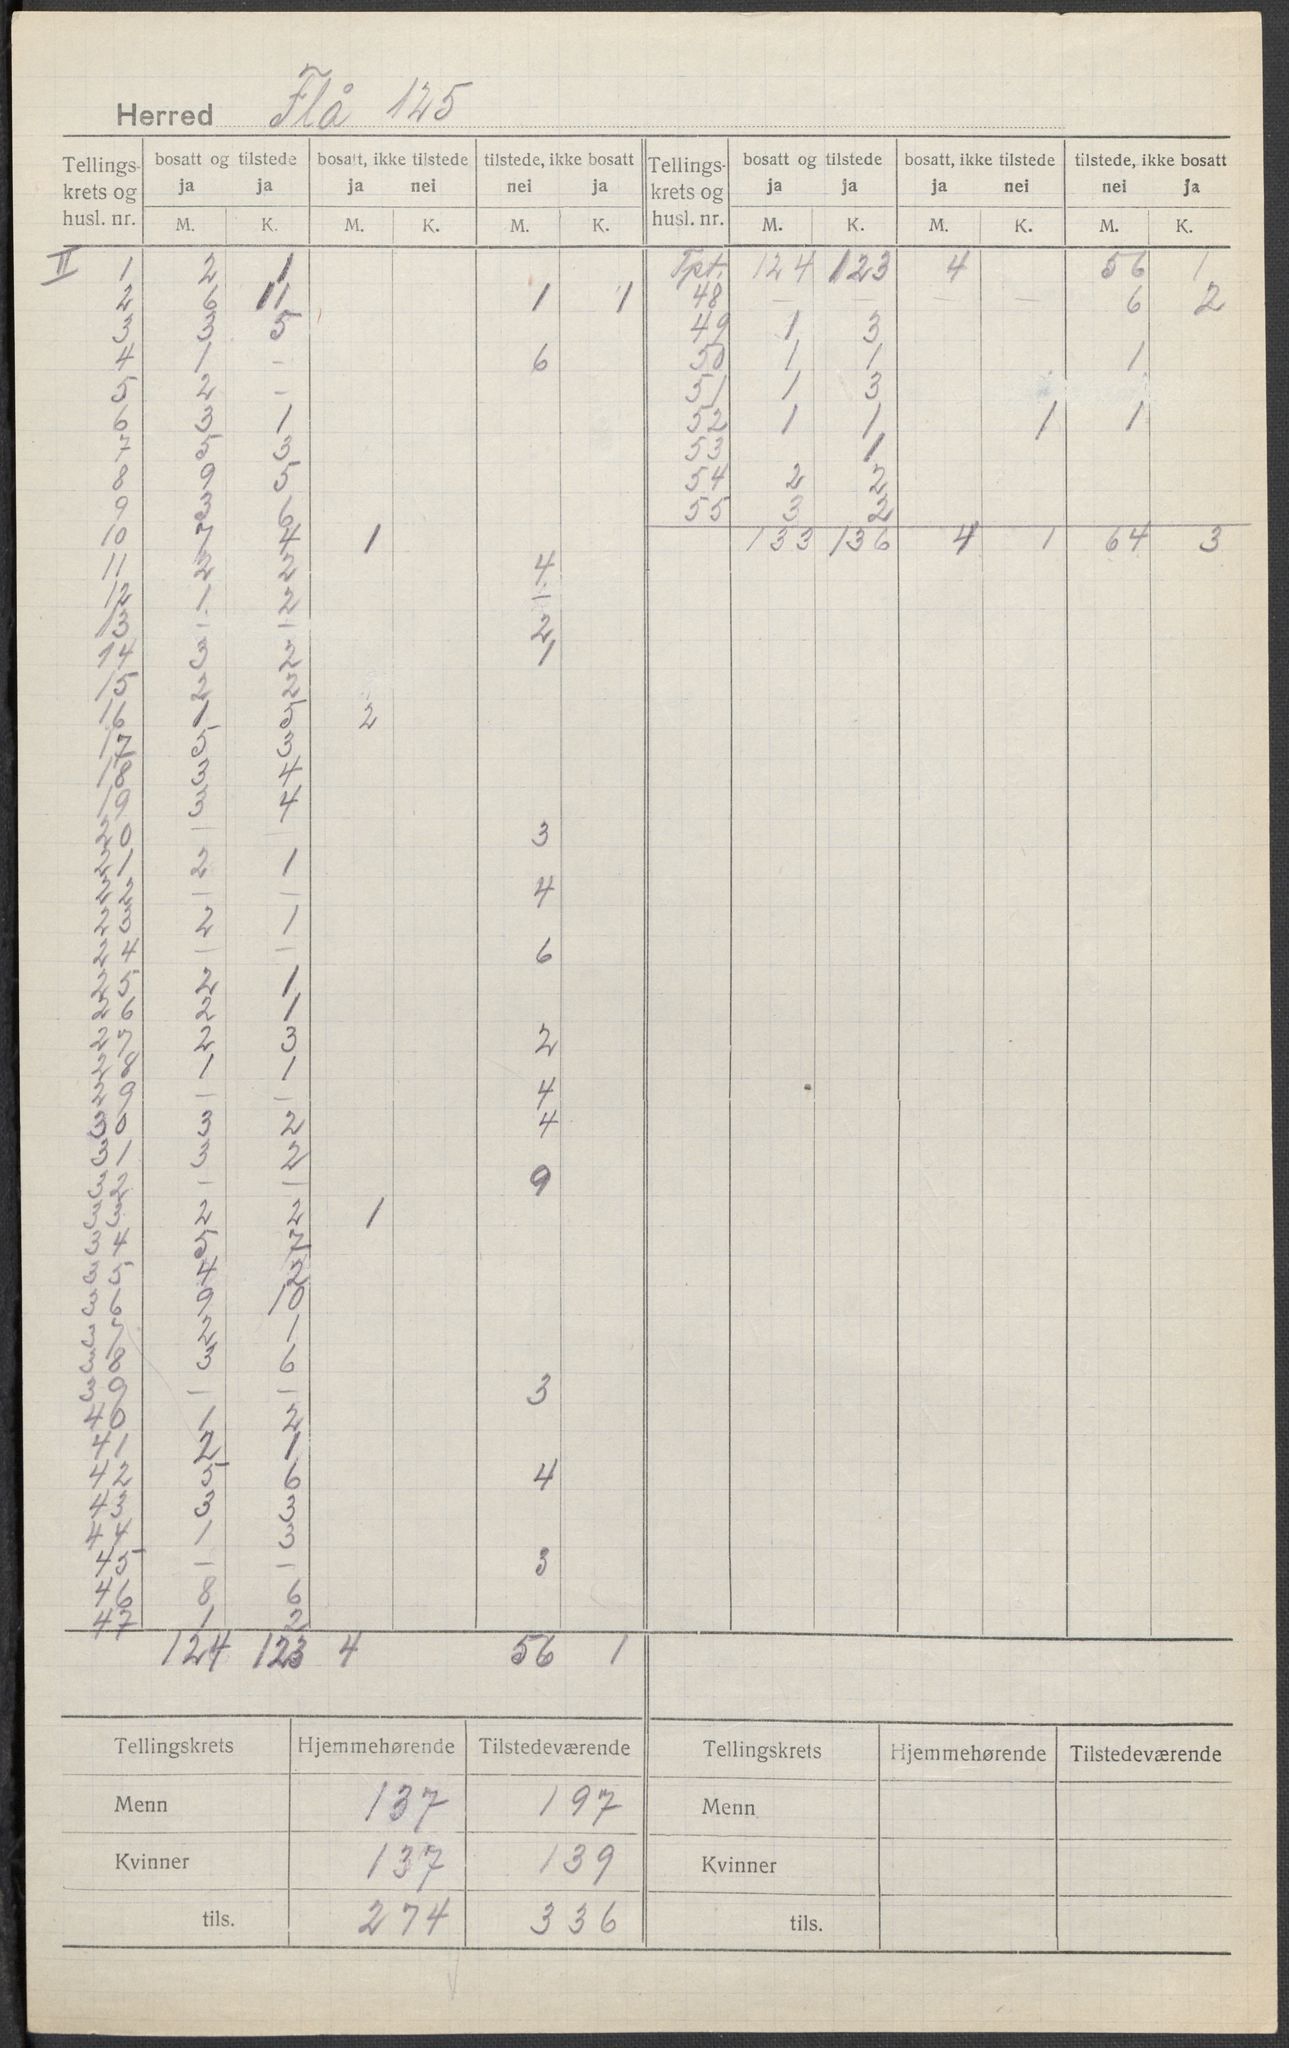 Herred Flå 125
Tellings- krets og husl. nr. | bosatt og tilstede ja M. | ja K. | bosatt, ikke tilstede ja M. | nei K. | tilstede, ikke bosatt nei M. | ja K.
II 1 | 2 | 1 | | | |
2 | 6 | 11 | | | 1 | 1
3 | 3 | 5 | | | |
4 | 1 | - | | | 6 |
5 | 2 | - | | | |
6 | 3 | 1 | | | |
7 | 5 | 3 | | | |
8 | 9 | 5 | | | |
9 | 3 | 6 | | | |
10 | 7 | 4 | 1 | | |
11 | 2 | 2 | | | 4 |
12 | 1 | 2 | | | 1 |
13 | - | - | | | 2 |
14 | 3 | 2 | | | 1 |
15 | 2 | 2 | | | |
16 | 1 | 5 | 2 | | |
17 | 5 | 3 | | | |
18 | 3 | 4 | | | |
19 | 3 | 4 | | | |
20 | - | - | | | 3 |
21 | 2 | 1 | | | |
22 | - | - | | | 4 |
23 | 2 | 1 | | | |
24 | - | - | | | 6 |
25 | 2 | 1 | | | |
26 | 2 | 1 | | | |
27 | 2 | 3 | | | 2 |
28 | 1 | 1 | | | |
29 | - | - | | | 4 |
30 | 3 | 2 | | | 4 |
31 | 3 | 2 | | | |
32 | - | - | | | 9 |
33 | 2 | 2 | 1 | | |
34 | 5 | 7 | | | |
35 | 4 | 2 | | | |
36 | 9 | 10 | | | |
37 | 2 | 1 | | | |
38 | 3 | 6 | | | |
39 | - | - | | | 3 |
40 | 1 | 2 | | | |
41 | 2 | 1 | | | |
42 | 5 | 6 | | | 4 |
43 | 3 | 3 | | | |
44 | 1 | 3 | | | |
45 | - | - | | | 3 |
46 | 8 | 6 | | | |
47 | 1 | 2 | | | |
124 | 123 | 4 | | 56 | 1
Tellings- krets og husl. nr. | bosatt og tilstede ja M. | ja K. | bosatt, ikke tilstede ja M. | nei K. | tilstede, ikke bosatt nei M. | ja K.
Tpt. | 124 | 123 | 4 | | 56 | 1
48 | - | - | - | - | 6 | 2
49 | 1 | 3 | | | |
50 | 1 | 1 | | | 1 |
51 | 1 | 3 | | | |
52 | 1 | 1 | | 1 | 1 |
53 | | 1 | | | |
54 | 2 | 2 | | | |
55 | 3 | 2 | | | |
133 | 136 | 4 | 1 | 64 | 3
Tellingskrets | Hjemmehørende | Tilstedeværende
Menn | 137 | 197
Kvinner | 137 | 139
tils. | 274 | 336
Tellingskrets | Hjemmehørende | Tilstedeværende
Menn
Kvinner
tils.